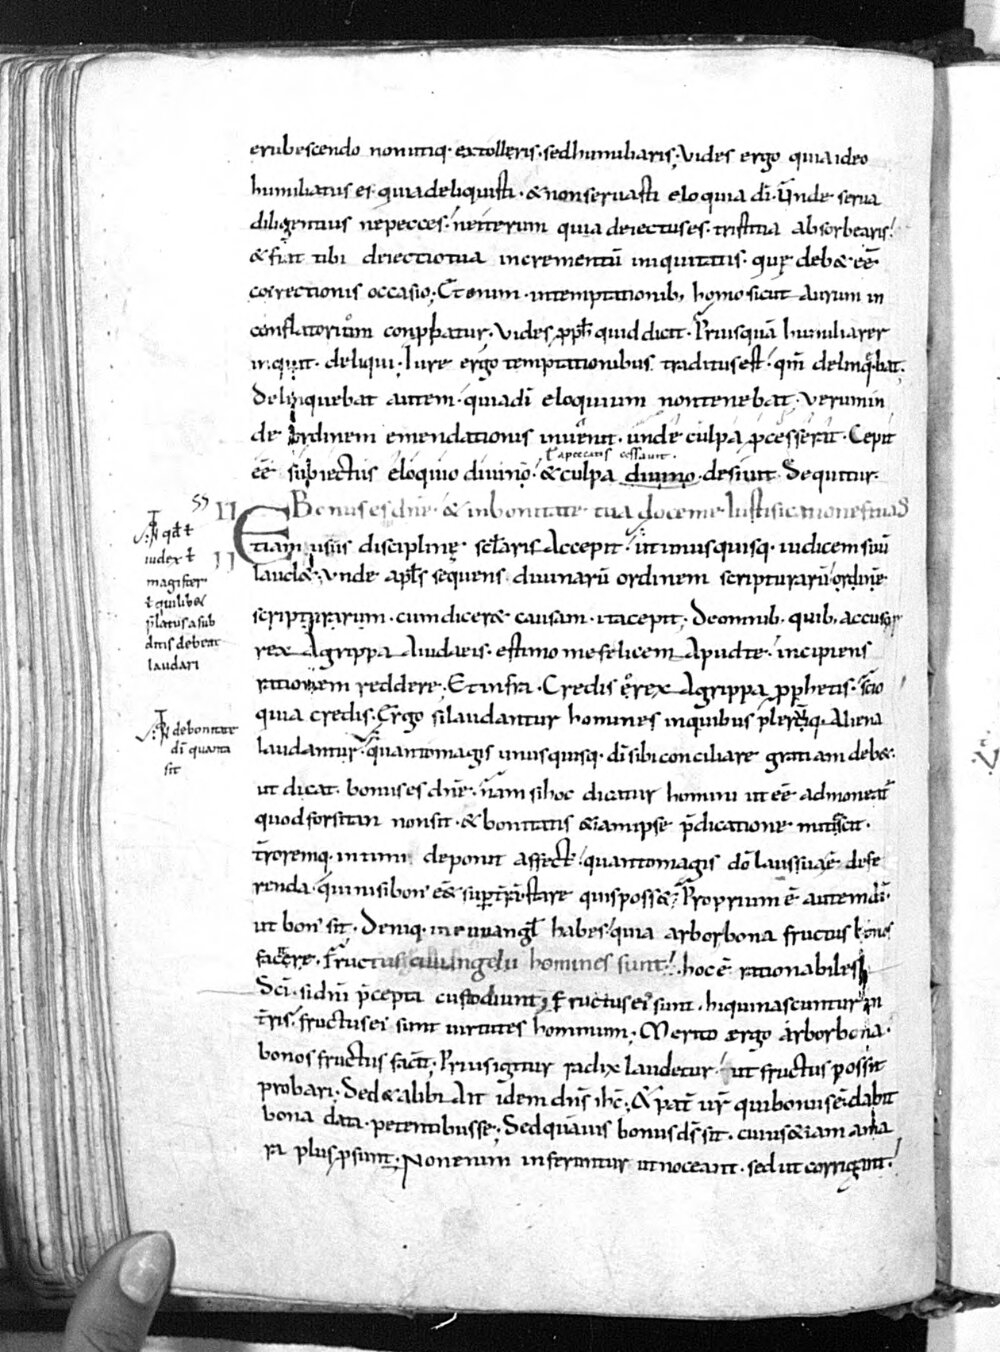 erubescendo non utiq· extolleris· sed humiliaris; Vides ergo quia ideo
humiliatus es· quia deliquisti· & non servasti eloquia dī· Unde serva
diligentius ne pecces· ne iterum quia deiectus es· tristitia absorbearis·
& fiat tibi deiectio tua incrementū iniquitatis· quę deb& eē
correctionis occasio; Etenim in temptationib; homo sicut aurum in
conflatorium conprobatur· Vides ꝓph quid dicit· Priusquā humiliarer
inquit· deliqui· Iure ergo temptationibus traditus est· qm̄ delinquebat·
Delinquebat autem· quia dī eloquium non tenebat· verum in
de ordinem emendationis invenit· unde culpa ꝓcesserat· Cepit
ł a peccatis cessavit·
eē subiectus eloquio divino· & culpa divino desiit· Sequitur·
Bonus es dn̄e· & in bonitate tua doce me iustificationes tuas
Etiam usus disciplinę sclāris accepit· ut unusquisq· iudicem suū
laud&· Unde apl̄s sequens divinarū ordinem scripturarū ordinē
scripturarum· cum dicer& causam· ita cepit; De omnib· quib; accusor
rex Agrippa a iudaeis· estimo me felicem apud te· incipiens
rationem reddere· Et infra· Credis rex Agrippa ꝓphetis· scio
quia credis· Ergo si laudantur homines in quibus pler&q· aliena
laudantur· quanto magis unusquisq· dī sibi conciliare gratiam deb&·
ut dicat· bonus es dn̄e· nam si hoc dicatur homini ut eē admoneat
quod forsitan non sit· & bonitatis & iam ipse p̄dicatione mitescit·
t̄roremq· intimi deponit affect· quanto magis dō laus sua ē defe
renda· qui nisi bon' ess& sup̄ t̄rā stare quis poss&; Proprium ē autem dī·
ut bon' sit· Deniq· in euuangl̄ habes· quia arbor bona fructus bonos
facere· Fructus angeli homines sunt· hoc ē rationabiles
Scī· si dn̄i p̄cepta custodiunt; Fructus ei' sunt· hi qui nascuntur in
t̄ris· fructus ei' sunt virtutes hominum; Merito ergo arbor bona·
bonos fructus facit· Prius igitur radix laudetur· ut fructus possit
probari; Sed & alibi ait idem dn̄s ih̄c; & pat̄ vr̄ qui bonus ē· dabit
bona data· petentibus se; Sed quāvis bonus ds̄ sit· cuius & iam ama
ra plus ꝓsunt· Non enim inferuntur ut noceant· sed ut corrigant·
57
II
II
N qd ł
iudex ł
magister
ł quilib&
p̄latus a sub
ditis debeat
laudari
N de bonitate
dī quanta
sit